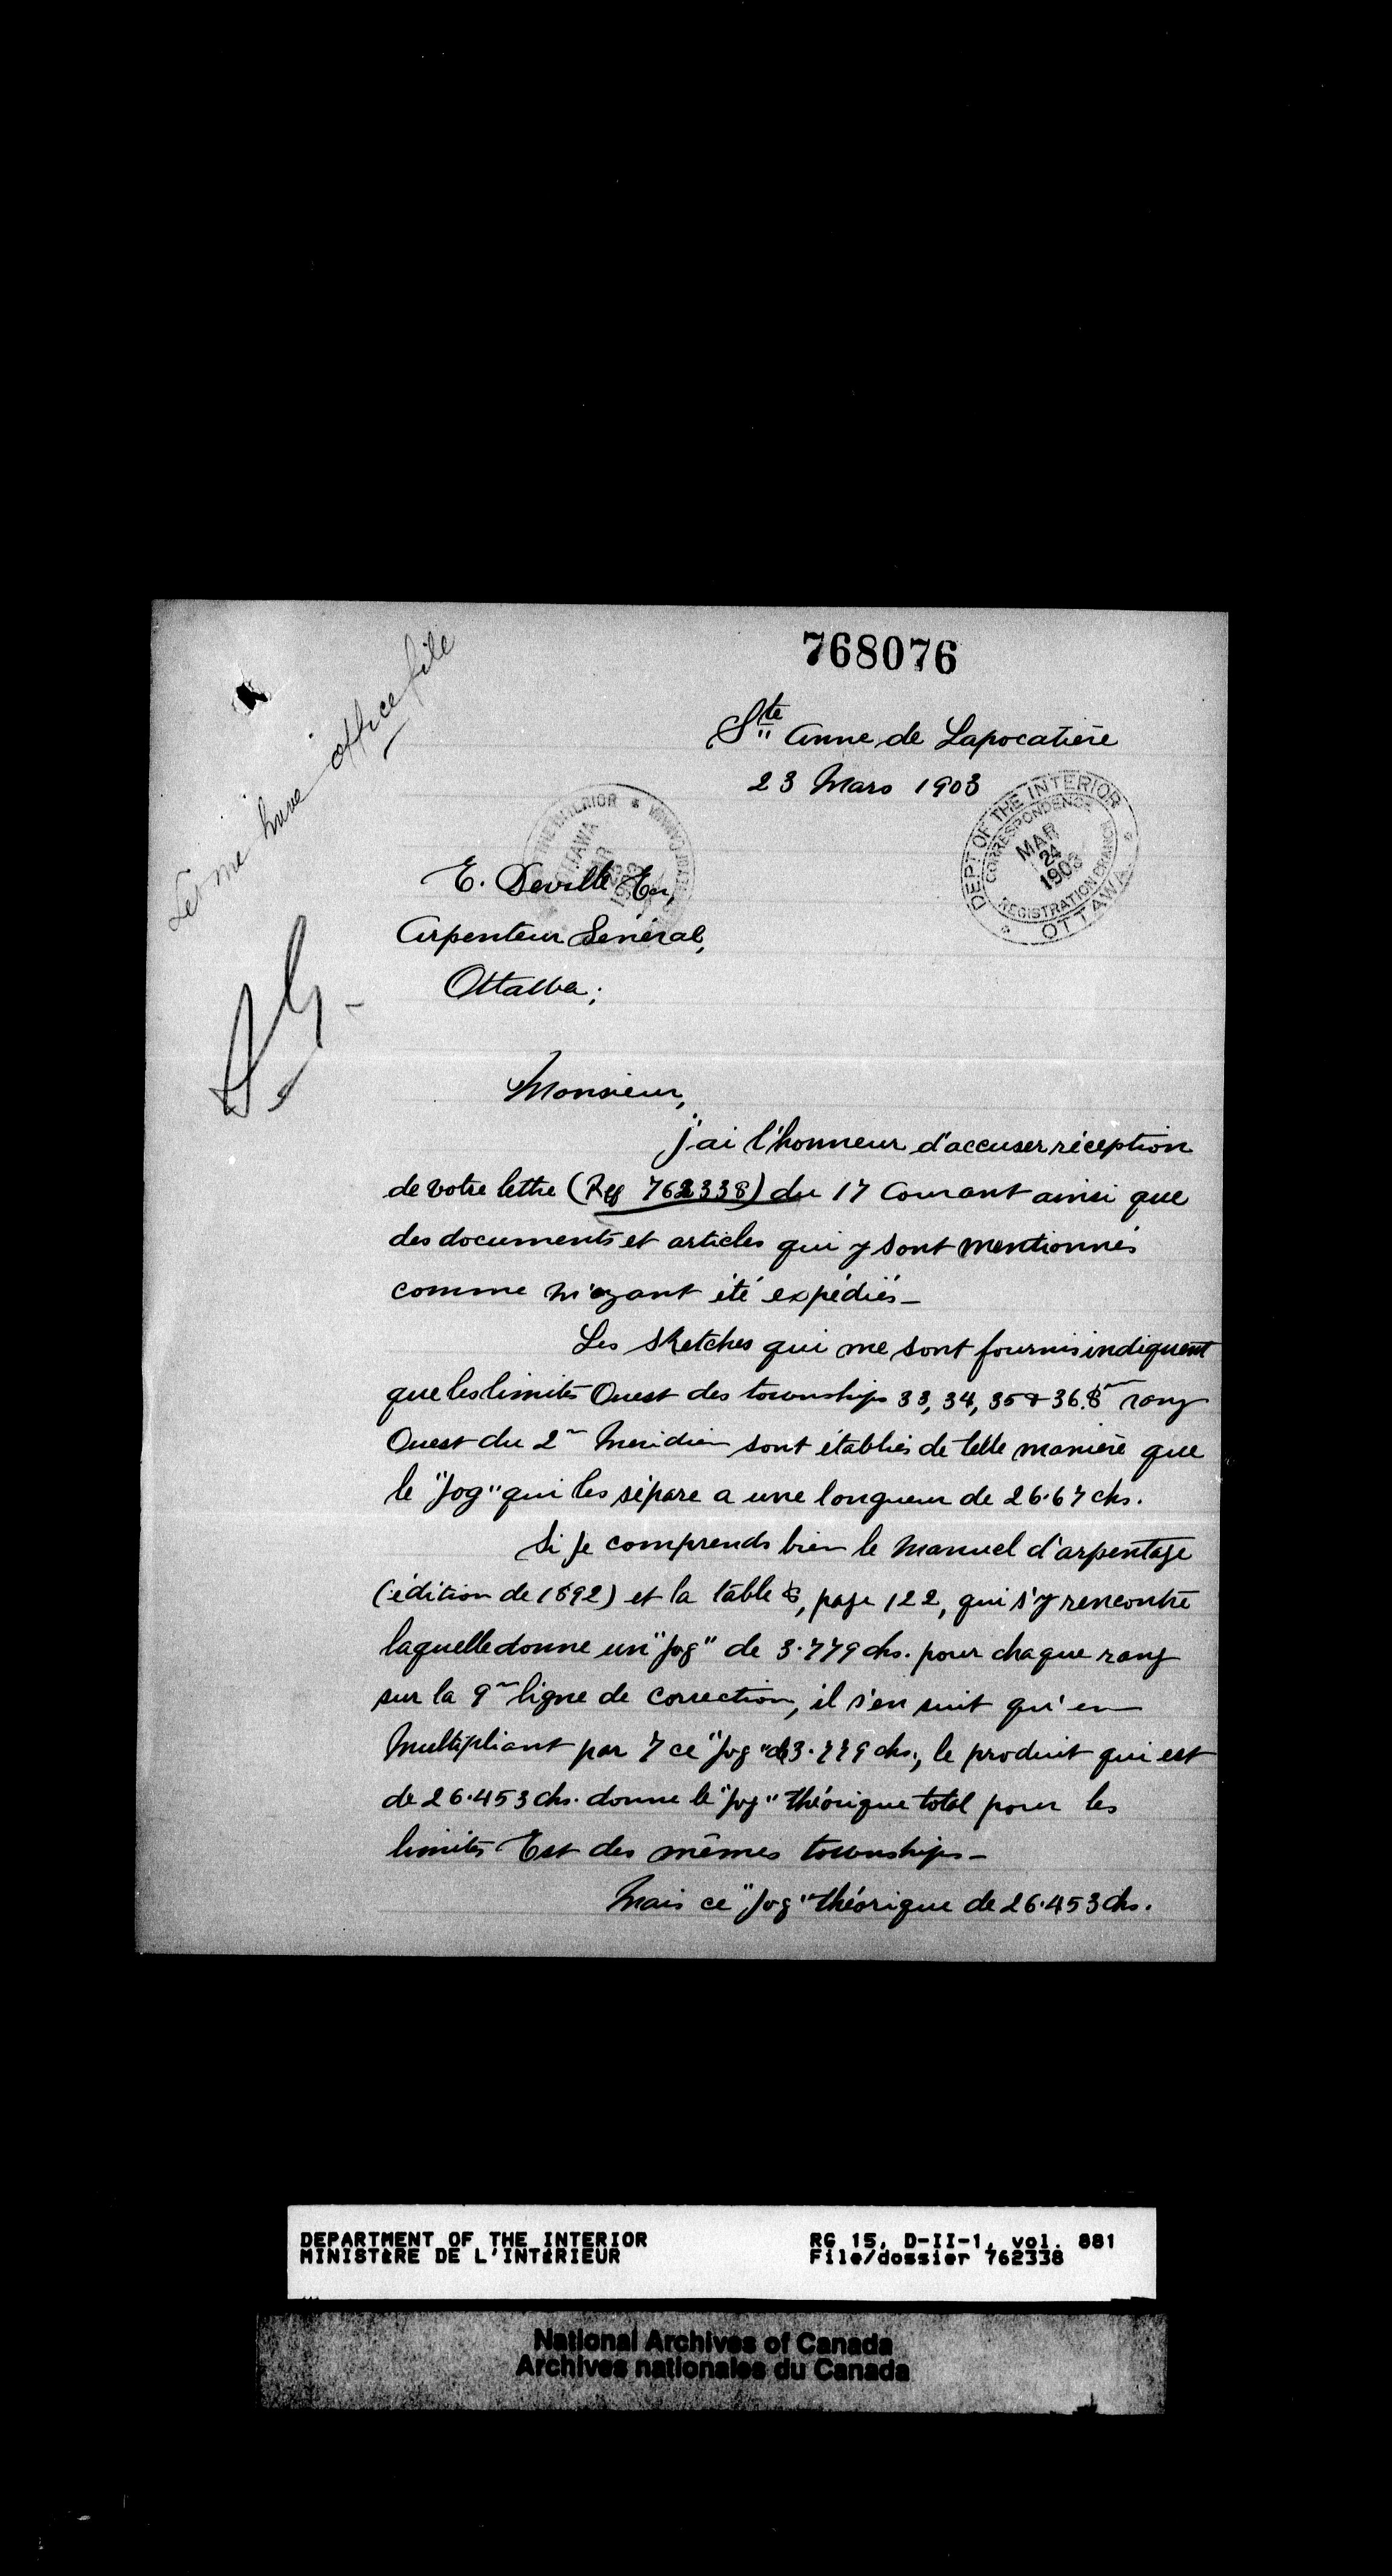 768076
Let me have office file
Ste Anne de Lapocatière
23 Mars 1903
DEPT OF THE INTERIOR
CORRESPONDENCE
MAR
24
1903
REGISTRATION BRANCH
OTTAWA
E. Deville Ecr,
Arpenteur Général,
Ottawa;
Monsieur,
j'ai l'honneur d'accuser réception
de votre lettre (Ref 762338) du 17 Courant ainsi que
des documents et articles qui y sont mentionnés
comme m'ayant été expédiés_
Les sketches qui me sont fournis indiquent
que les limites Ouest des townships 33, 34, 35 & 36. 8me rang
Ouest du 2me Meridien sont établies de telle manière que
le "jog" qui les sépare a une longueur de 26.67 chs.
Si je comprends bien le Manuel d'arpentage
(édition de 1892) et la table , page 122, qui s'y rencontre
laquelle donne un "jog" de 3.779 chs. pour chaque rang
sur la 9me ligne de correction, il s'en suit qu'en
Multipliant par 7 ce "jog" de 3.779 chs., le produit qui est
de 26.453 chs. donne le "jog" théorique total pour les
limites Est des mêmes townships_
Mais ce "jog" théorique de 26.453 chs.
DEPARTMENT OF THE INTERIOR
MINISTÈRE DE L'INTÉRIEUR
RG 15, D-II-1, vol. 881
File/dossier 762338
National Archives of Canada
Archives nationales du Canada